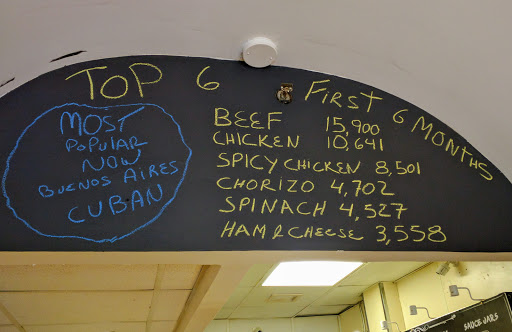 TOP 6 FIRST 6 MONTHS
MOST
POPULAR
NOW
BUENOS AIRES
CUBAN
BEEF 15,900
CHICKEN 10,641
SPICY CHICKEN 8,501
CHORIZO 4,702
SPINACH 4,527
HAM & CHEESE 3,558
SAUCE JARS